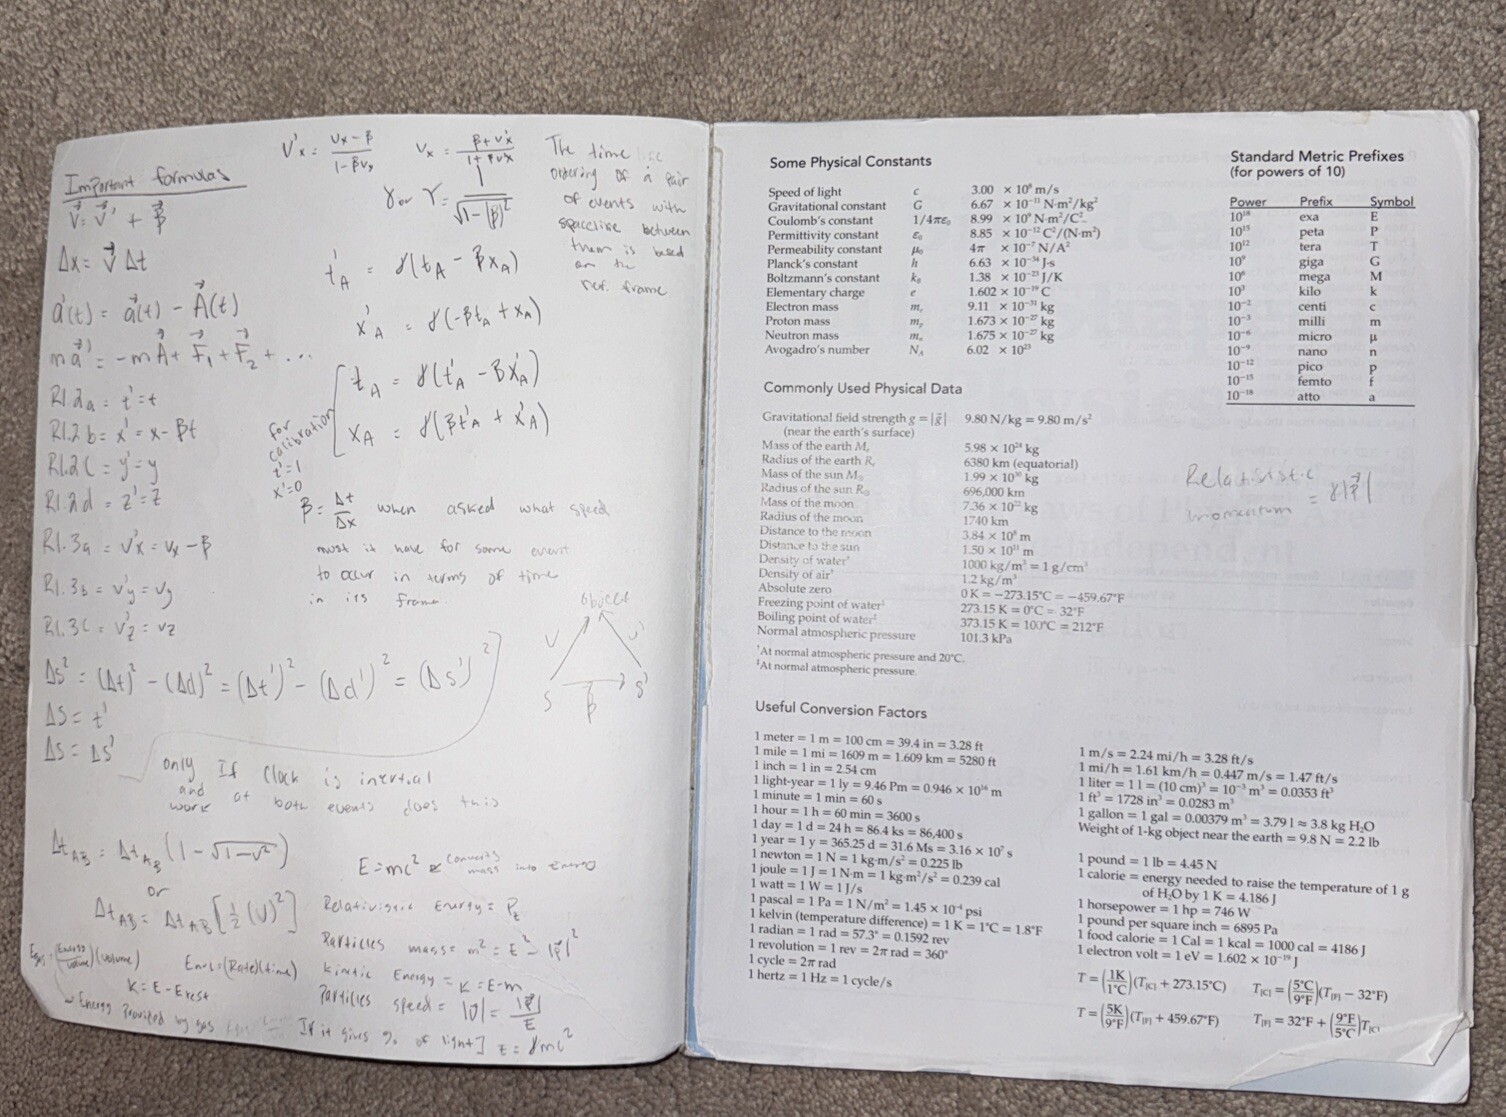 Important formulas
V⃗ = V⃗' + β⃗
Δx = V⃗ Δt
a⃗'(t) = a⃗(t) − A⃗(t)
ma⃗' = −mA⃗ + F⃗₁ + F⃗₂ + ...
R1.2a = t' = t
R1.2b = x' = x − βt
R1.2c = y' = y
R1.2d = z' = z
R1.3a = v'x = vx − β
R1.3b = v'y = vy
R1.3c = v'z = vz
Δs² = (Δt)² − (Δd)² = (Δt')² − (Δd')² = (Δs')²
Δs = t'
Δs = Δs'
only If Clock is inertial
and
work at both events does this
Δt_AB = Δt_AB (1 − √1−v²)
or
Δt_AB = Δt_AB [½(v)²]
(volume)
(Rate)(time)
K = E − Erest
Energy Provided by gas
V'x = (Vx − β)/(1 − βvx)
Vx = (β + v'x)/(1 + βvx)
γ or γ = 1/√1−|β|²
t'A = γ(tA − βxA)
x'A = γ(−βtA + xA)
for
calibration
t'=1
x'=0
tA = γ(t'A − βx'A)
xA = γ(βt'A + x'A)
The time
ordering of a pair
of events with
spacelike between
them is based
on the
ref. frame
β = Δt/Δx when asked what speed
must it have for some event
to occur in terms of time
in its frame
object
V
S
β
S'
E = mc² converts
mass into Energy
Relativistic Energy = Pt
Particles mass = m² = E² − |p⃗|²
kinetic Energy = K = E − m
Particles speed = |v⃗| = |p⃗|/E
If it gives % of light] E = γmc²
Some Physical Constants
Speed of light c 3.00 × 10⁸ m/s
Gravitational constant G 6.67 × 10⁻¹¹ N·m²/kg²
Coulomb's constant 1/4πε₀ 8.99 × 10⁹ N·m²/C²
Permittivity constant ε₀ 8.85 × 10⁻¹² C²/(N·m²)
Permeability constant μ₀ 4π × 10⁻⁷ N/A²
Planck's constant h 6.63 × 10⁻³⁴ J·s
Boltzmann's constant kB 1.38 × 10⁻²³ J/K
Elementary charge e 1.602 × 10⁻¹⁹ C
Electron mass me 9.11 × 10⁻³¹ kg
Proton mass mp 1.673 × 10⁻²⁷ kg
Neutron mass mn 1.675 × 10⁻²⁷ kg
Avogadro's number NA 6.02 × 10²³
Standard Metric Prefixes
(for powers of 10)
Power Prefix Symbol
10¹⁸ exa E
10¹⁵ peta P
10¹² tera T
10⁹ giga G
10⁶ mega M
10³ kilo k
10⁻² centi c
10⁻³ milli m
10⁻⁶ micro μ
10⁻⁹ nano n
10⁻¹² pico p
10⁻¹⁵ femto f
10⁻¹⁸ atto a
Commonly Used Physical Data
Gravitational field strength g = |g⃗| 9.80 N/kg = 9.80 m/s²
(near the earth's surface)
Mass of the earth Me 5.98 × 10²⁴ kg
Radius of the earth Re 6380 km (equatorial)
Mass of the sun M⊙ 1.99 × 10³⁰ kg
Radius of the sun R⊙ 696,000 km
Mass of the moon 7.36 × 10²² kg
Radius of the moon 1740 km
Distance to the moon 3.84 × 10⁸ m
Distance to the sun 1.50 × 10¹¹ m
Density of water† 1000 kg/m³ = 1 g/cm³
Density of air† 1.2 kg/m³
Absolute zero 0 K = −273.15°C = −459.67°F
Freezing point of water‡ 273.15 K = 0°C = 32°F
Boiling point of water‡ 373.15 K = 100°C = 212°F
Normal atmospheric pressure 101.3 kPa
†At normal atmospheric pressure and 20°C.
‡At normal atmospheric pressure.
Relatististic
momentum = γ|p⃗|
Useful Conversion Factors
1 meter = 1 m = 100 cm = 39.4 in = 3.28 ft
1 mile = 1 mi = 1609 m = 1.609 km = 5280 ft
1 inch = 1 in = 2.54 cm
1 light-year = 1 ly = 9.46 Pm = 0.946 × 10¹⁶ m
1 minute = 1 min = 60 s
1 hour = 1 h = 60 min = 3600 s
1 day = 1 d = 24 h = 86.4 ks = 86,400 s
1 year = 1 y = 365.25 d = 31.6 Ms = 3.16 × 10⁷ s
1 newton = 1 N = 1 kg·m/s² = 0.225 lb
1 joule = 1 J = 1 N·m = 1 kg·m²/s² = 0.239 cal
1 watt = 1 W = 1 J/s
1 pascal = 1 Pa = 1 N/m² = 1.45 × 10⁻⁴ psi
1 kelvin (temperature difference) = 1 K = 1°C = 1.8°F
1 radian = 1 rad = 57.3° = 0.1592 rev
1 revolution = 1 rev = 2π rad = 360°
1 cycle = 2π rad
1 hertz = 1 Hz = 1 cycle/s
1 m/s = 2.24 mi/h = 3.28 ft/s
1 mi/h = 1.61 km/h = 0.447 m/s = 1.47 ft/s
1 liter = 1 l = (10 cm)³ = 10⁻³ m³ = 0.0353 ft³
1 ft³ = 1728 in³ = 0.0283 m³
1 gallon = 1 gal = 0.00379 m³ = 3.79 l ≈ 3.8 kg H₂O
Weight of 1-kg object near the earth = 9.8 N = 2.2 lb
1 pound = 1 lb = 4.45 N
1 calorie = energy needed to raise the temperature of 1 g
of H₂O by 1 K = 4.186 J
1 horsepower = 1 hp = 746 W
1 pound per square inch = 6895 Pa
1 food calorie = 1 Cal = 1 kcal = 1000 cal = 4186 J
1 electron volt = 1 eV = 1.602 × 10⁻¹⁹ J
T = (1K/1°C)(T[C] + 273.15°C) T[C] = (5°C/9°F)(T[F] − 32°F)
T = (5K/9°F)(T[F] + 459.67°F) T[F] = 32°F + (9°F/5°C)T[C]